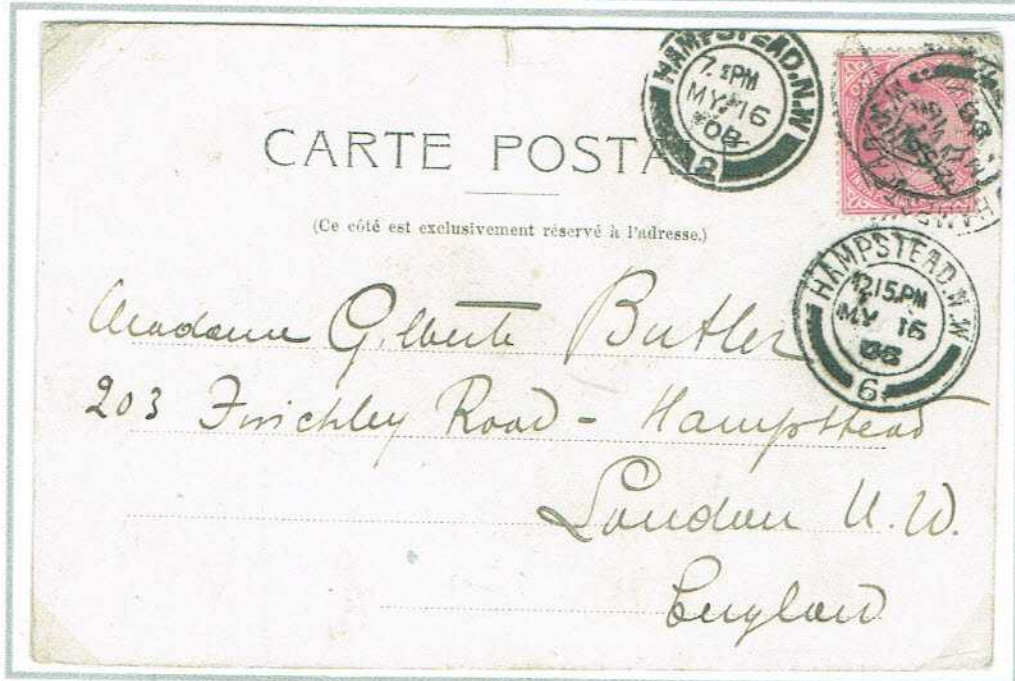 HAMPSTEAD.N.W
7. PM
MY 16
08
2
CARTE POSTA
(Ce côté est exclusivement réservé à l'adresse.)
HAMPSTEAD.N.W
12.15.PM
MY 16
6
Madame Gilberte Butler
203 Finchley Road - Hampstead
London N.W.
England
ONE